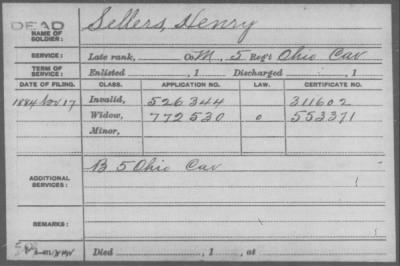 DEAD
NAME OF SOLDIER: Sellers, Henry
SERVICE: Late rank, Co. M, 5 Reg't Ohio Cav
TERM OF SERVICE: Enlisted , 1 Discharged , 1
DATE OF FILING. CLASS. APPLICATION NO. LAW. CERTIFICATE NO.
1884 Nov 17 Invalid, 526344 311602
Widow, 772530 0 553371
Minor,
ADDITIONAL SERVICES: B 5 Ohio Cav
REMARKS:
Died , 1 , at